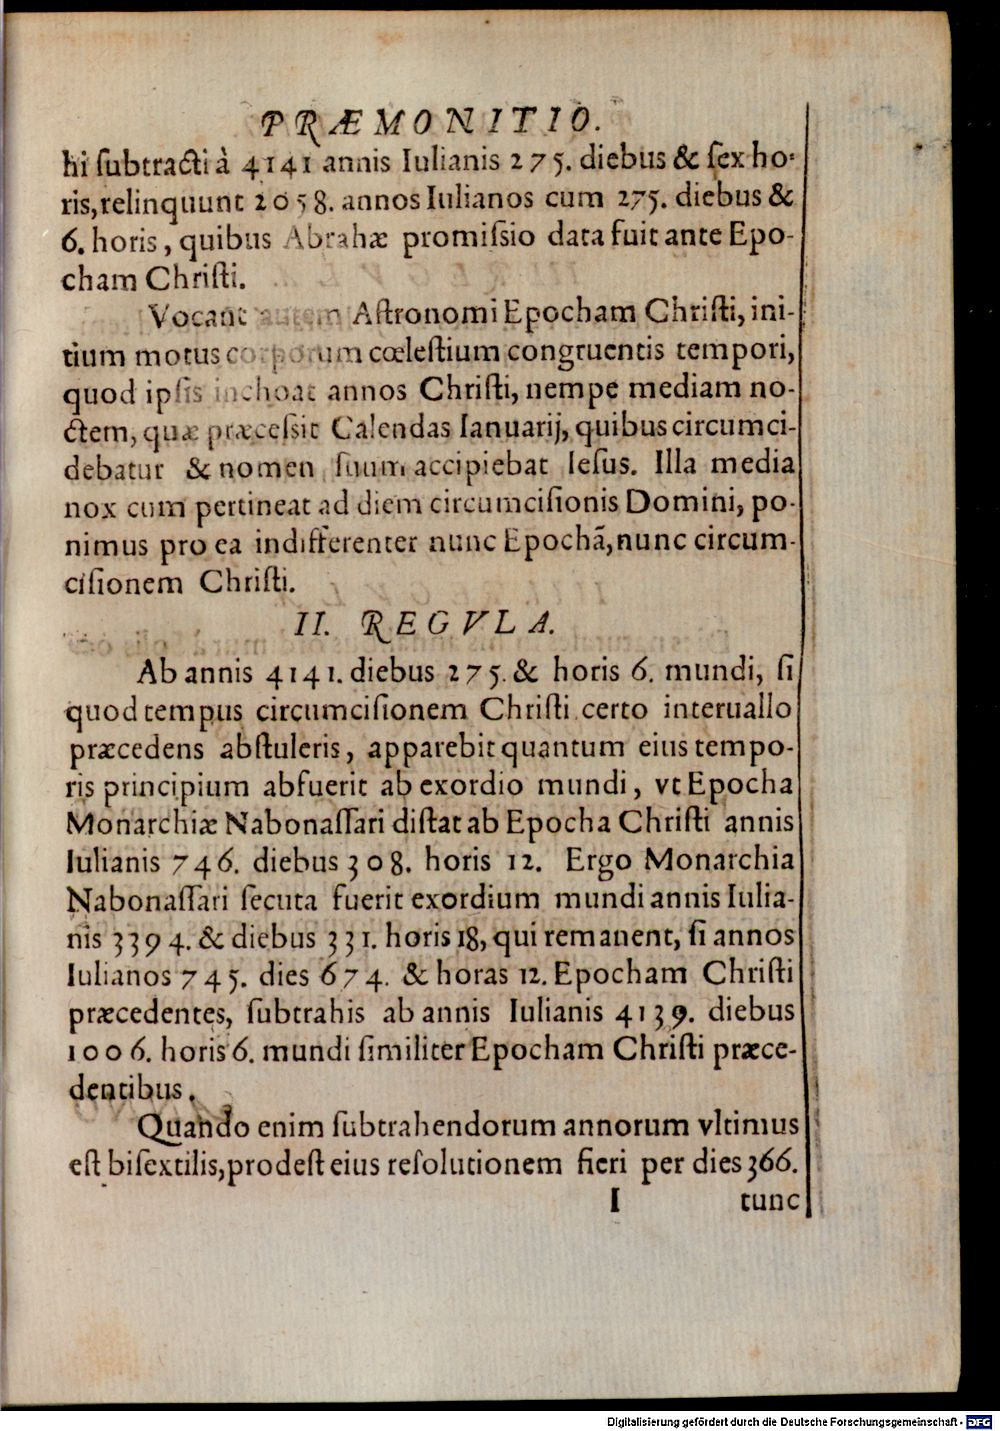 PRÆMONITIO.
hi ſubtracti à 4141 annis Iulianis 275. diebus & ſex ho-
ris, relinquunt 2058. annos Iulianos cum 275. diebus &
6. horis, quibus Abrahæ promiſsio data fuit ante Epo-
cham Chriſti.
Vocant autem Aſtronomi Epocham Chriſti, ini-
tium motus corporum cœleſtium congruentis tempori,
quod ipſis inchoat annos Chriſti, nempe mediam no-
ctem, quæ præceſsit Calendas Ianuarij, quibus circumci-
debatur & nomen ſuum accipiebat Ieſus. Illa media
nox cum pertineat ad diem circumciſionis Domini, po-
nimus pro ea indifferenter nunc Epochã, nunc circum-
ciſionem Chriſti.
II. REGVLA.
Ab annis 4141. diebus 275. & horis 6. mundi, ſi
quod tempus circumciſionem Chriſti certo interuallo
præcedens abſtuleris, apparebit quantum eius tempo-
ris principium abfuerit ab exordio mundi, vt Epocha
Monarchiæ Nabonaſſari diſtat ab Epocha Chriſti annis
Iulianis 746. diebus 308. horis 12. Ergo Monarchia
Nabonaſſari ſecuta fuerit exordium mundi annis Iulia-
nis 3394. & diebus 331. horis 18, qui remanent, ſi annos
Iulianos 745. dies 674. & horas 12. Epocham Chriſti
præcedentes, ſubtrahis ab annis Iulianis 4139. diebus
1006. horis 6. mundi ſimiliter Epocham Chriſti præce-
dentibus.
Quando enim ſubtrahendorum annorum vltimus
eſt biſextilis, prodeſt eius reſolutionem fieri per dies 366.
I tunc
Digitalisierung gefördert durch die Deutsche Forschungsgemeinschaft - DFG